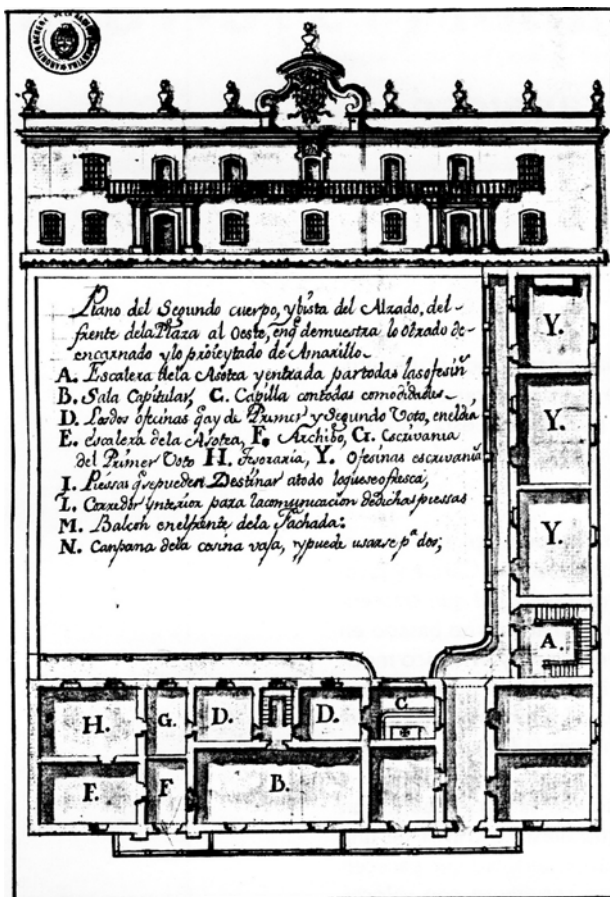 Plano del Segundo cuerpo, y bista del Alzado, del
frente dela Plaza al Oeste, enq.e demuestra lo obrado de
encarnado y lo proieytado de Amarillo.
A. Escalera dela Asotea y entrada partodas lasofesin.
B. Sala Capitular, C. Capilla contodas comodidades.
D. Lasdos ofecinas qay de Primer y Segundo Voto, eneldia
E. escalera dela Asotea, F. Archibo, G. Escrivania
del Primer Voto H. Tesoraria, Y. Ofesinas escrivania
I. Piessas quesepueden Destinar atodo loqueseofresca,
L. Corredor ynterior para lacomunicacion dedichas piessas
M. Balcon enelfrente dela Fachada:
N. Canpana dela cosina vaja, ypuede usarse p.a dos;
Y.
Y.
Y.
A.
H.
G.
D.
D.
C
F.
F
B.